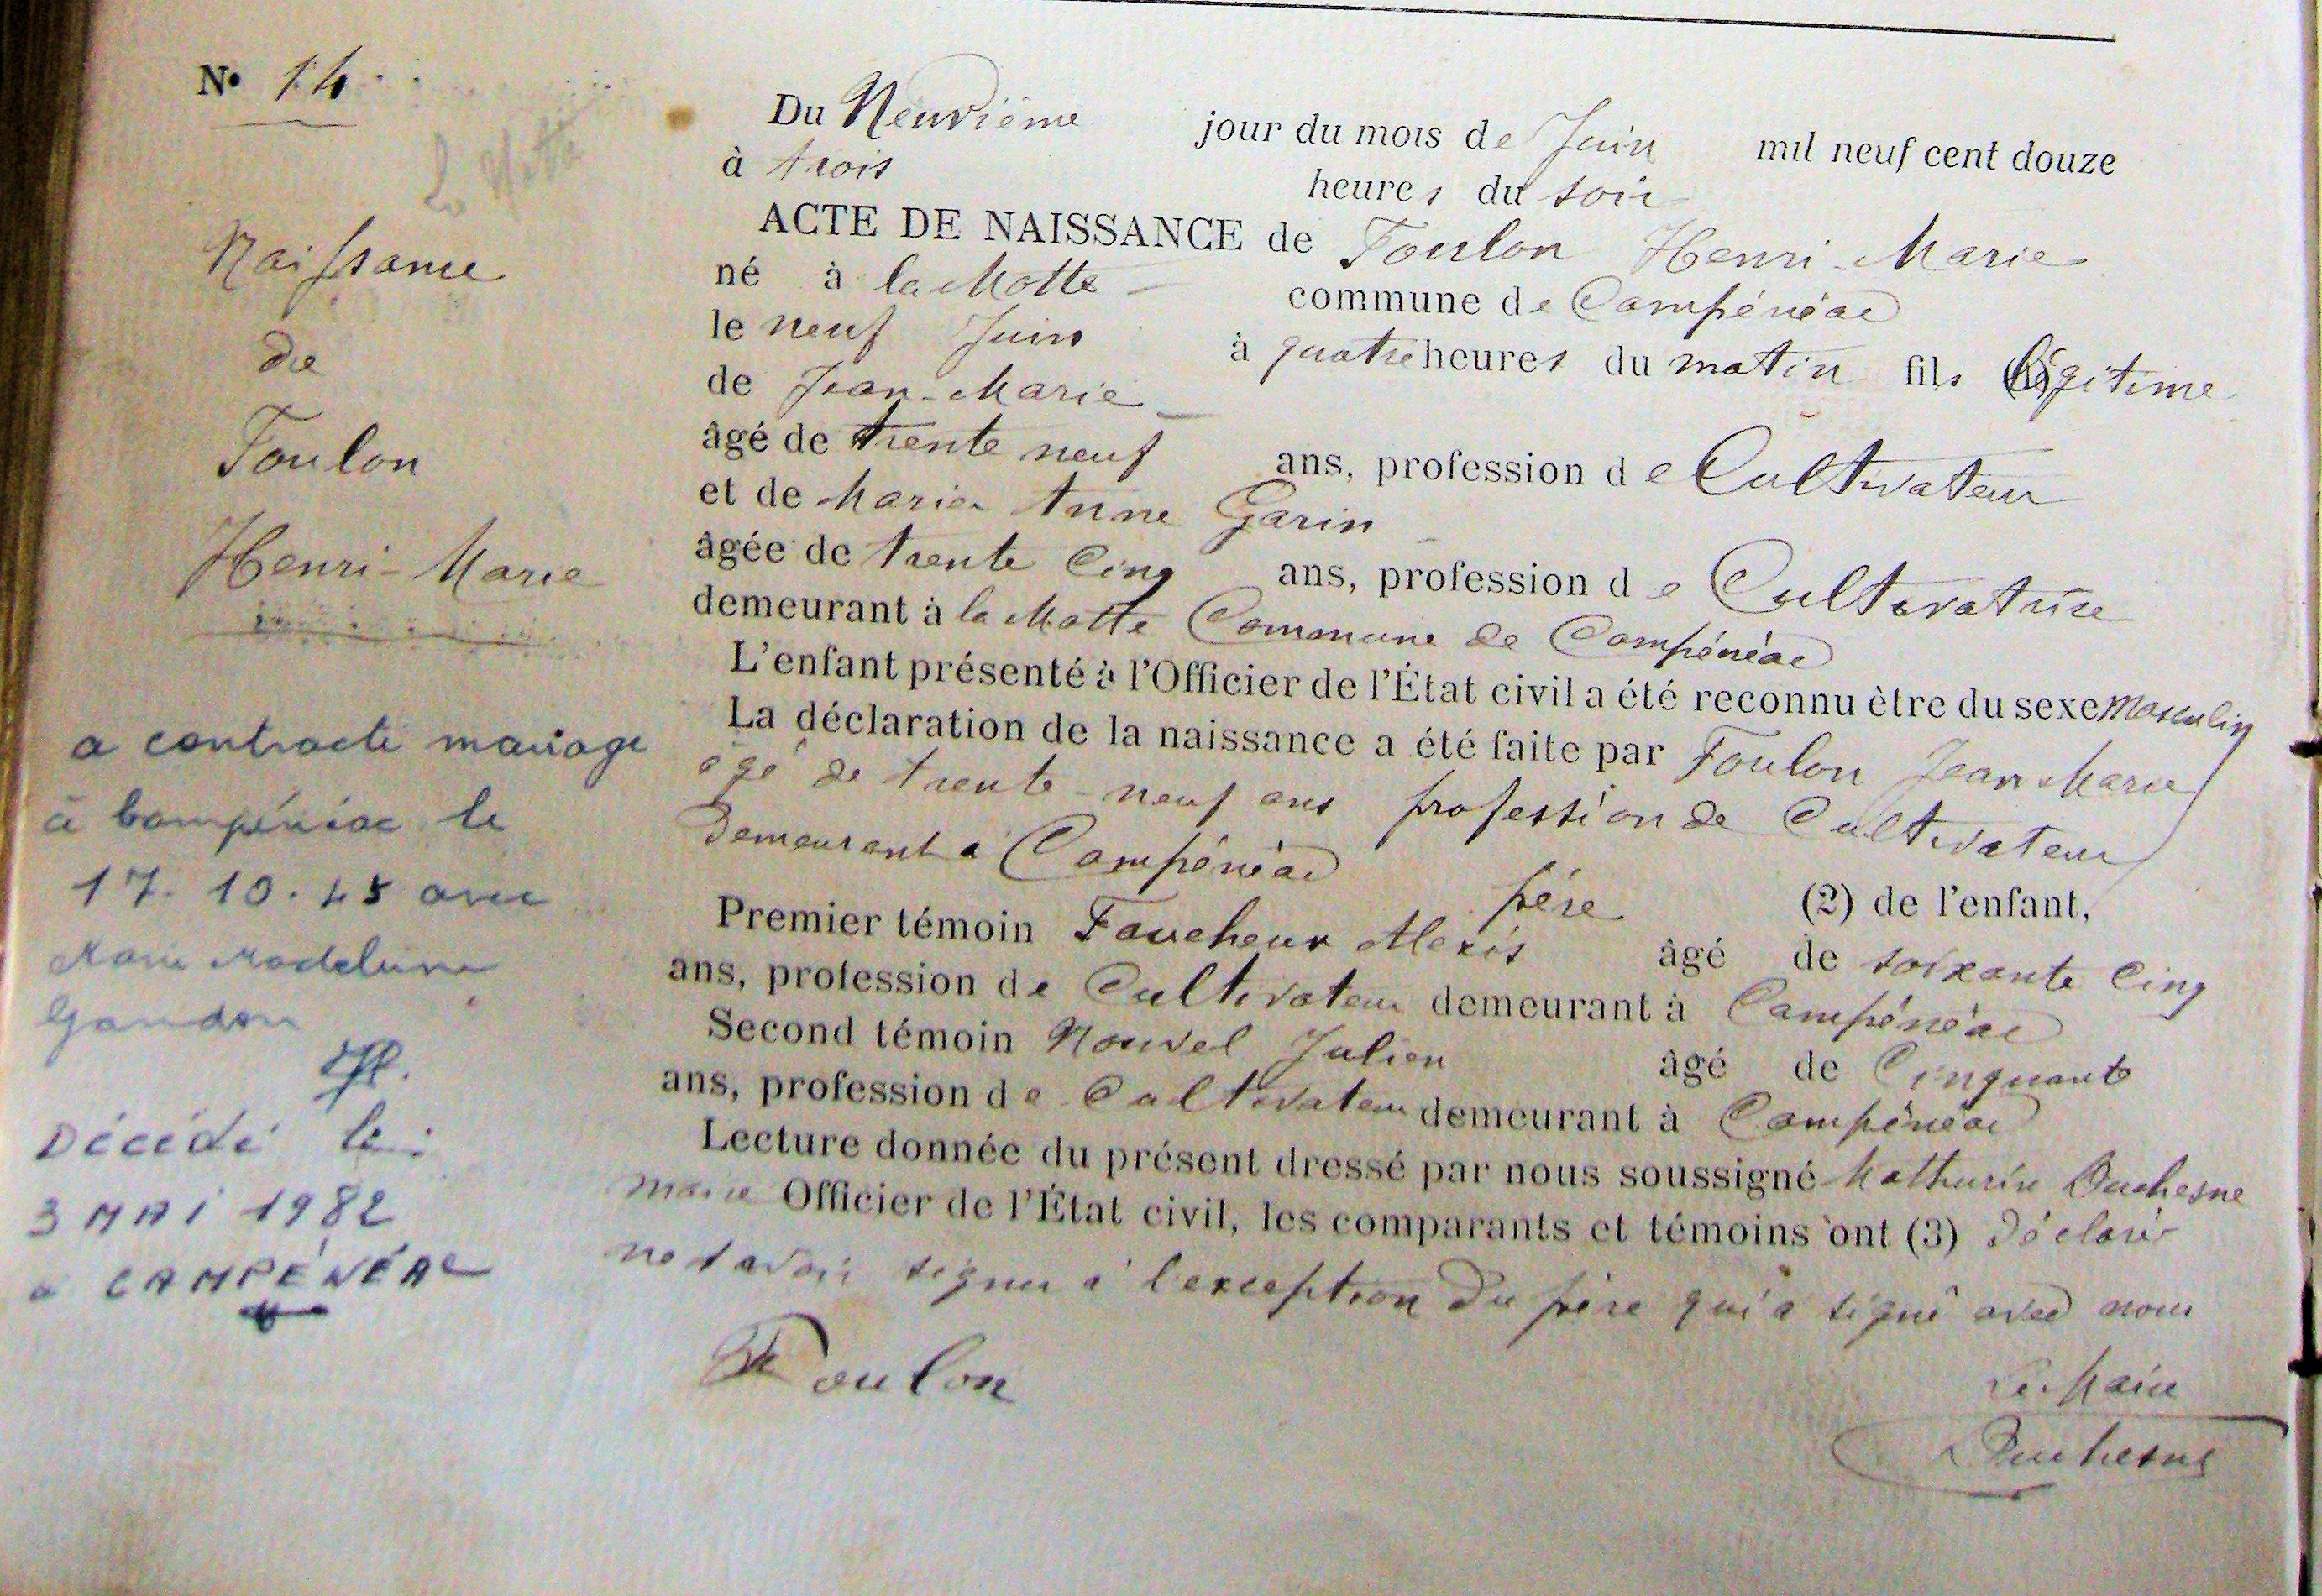 N° 14
Naissance
de
Foulon
Henri-Marie
a contracté mariage
à Campénéac le
17.10.45 avec
Marie Madeleine
Gandon
Décédé le :
3 MAI 1982
a CAMPÉNÉAC
Du Neuvième jour du mois de Juin mil neuf cent douze
à trois heures du soir
ACTE DE NAISSANCE de Foulon Henri-Marie
né à la Motte commune de Campénéac
le neuf Juin à quatre heures du matin fils légitime
de Jean-Marie
âgé de trente neuf ans, profession de Cultivateur
et de Marie Anne Garin
âgée de trente Cinq ans, profession de Cultivatrice
demeurant à la Motte Commune de Campénéac
L'enfant présenté à l'Officier de l'État civil a été reconnu être du sexe masculin
La déclaration de la naissance a été faite par Foulon Jean Marie
âgé de trente-neuf ans profession de Cultivateur
demeurant à Campénéac père (2) de l'enfant,
Premier témoin Faucheux Alexis âgé de soixante Cinq
ans, profession de Cultivateur demeurant à Campénéac
Second témoin Nouvel Julien âgé de Cinquante
ans, profession de Cultivateur demeurant à Campénéac
Lecture donnée du présent dressé par nous soussigné Mathurin Duchesne
maire Officier de l'État civil, les comparants et témoins ont (3) déclaré
ne savoir signer à l'exception du père qui a signé avec nous
Foulon
Le Maire
Duchesne